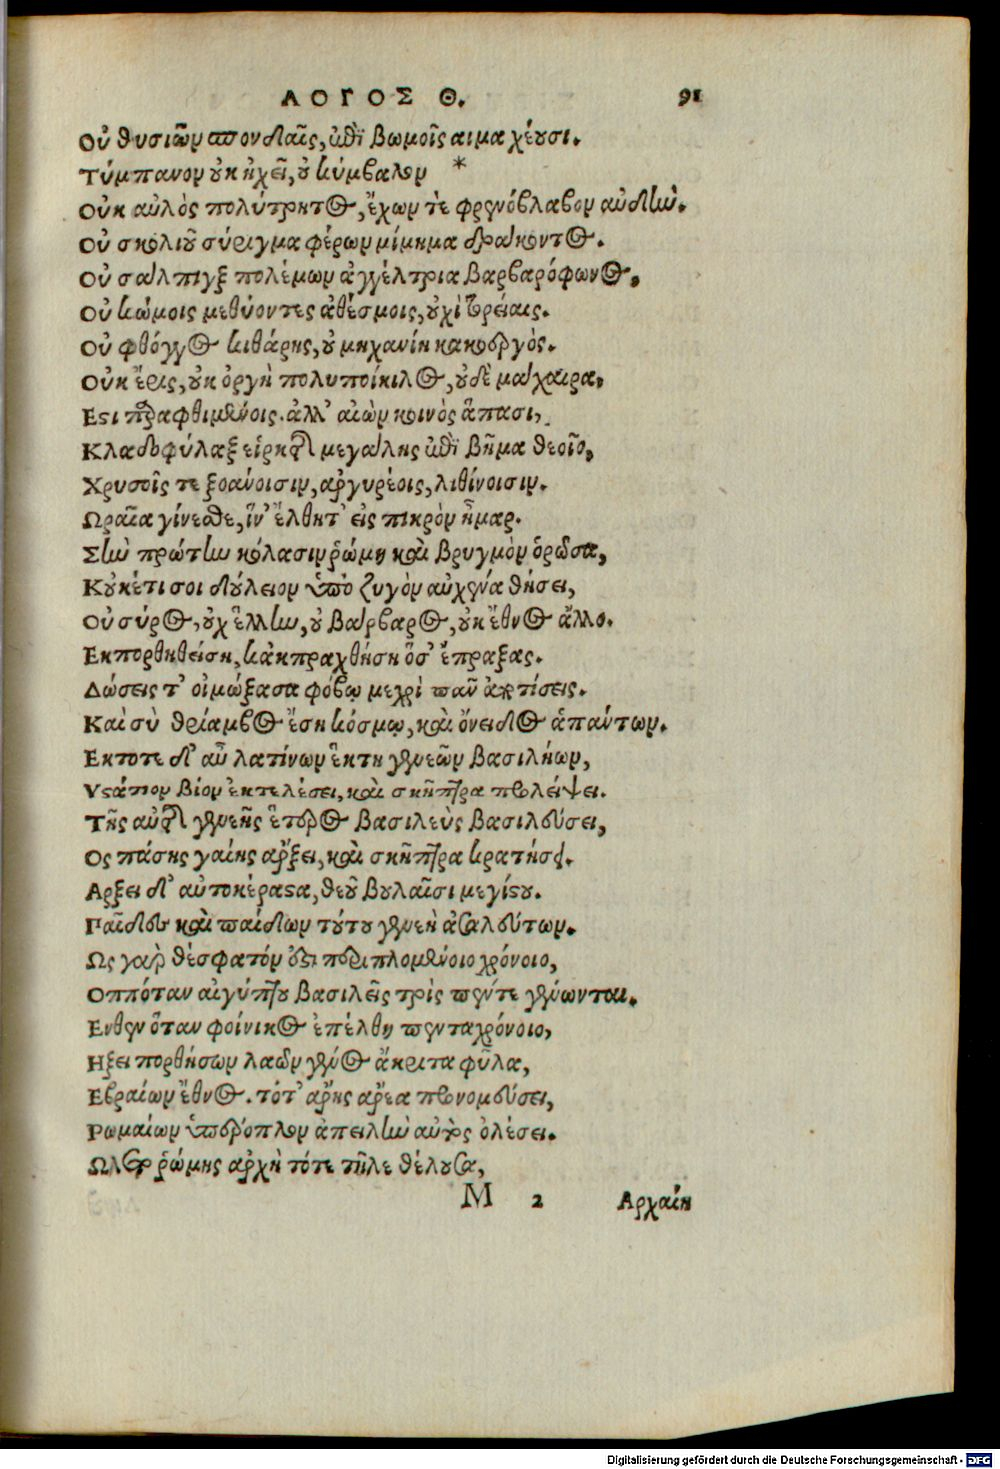 ΛΟΓΟΣ Θ. 91
Οὐ θυσιῶν σπονδαῖς, ἐπὶ βωμοῖς αιμα χέουσι.
Τύμπανον οὐκ ἠχεῖ, οὐ κύμβαλον *
Οὐκ αὐλὸς πολύτρητος, ἔχων τὲ φρενόβλαβον αὐδὴν.
Οὐ σκολιοῦ σύριγμα φέρων μίμημα δράκοντος.
Οὐ σάλπιγξ πολέμων ἀγγέλτρια βαρβαρόφωνος,
Οὐ κώμοις μεθύοντες ἀθέσμοις, οὐχὶ χορείαις.
Οὐ φθόγγος κιθάρης, οὐ μηχανίη κακοεργὸς.
Οὐκ ἔρις, οὐκ ὀργὴ πολυποίκιλος, οὐδὲ μάχαιρα,
Εστι παρα φθιμένοις. ἀλλ' αἰὼν κοινὸς ἅπασι,
Κλαδοφύλαξ εἱρκτῆς μεγάλης ἐπὶ βῆμα θεοῖο,
Χρυσοῖς τε ξοάνοισιν, ἀργυρέοις, λιθίνοισιν.
Ωραῖα γίνεσθε, ἵν' ἔλθητ' εἰς πικρὸν ἦμαρ.
Σὴν πρώτην κόλασιν ῥώμη καὶ βρυγμὸν ὁρῶσα,
Κοὐκέτι σοι δούλειον ὑπὸ ζυγὸν αὐχένα θήσει,
Οὐ σύρος, οὐχ ἕλλην, οὐ βάρβαρος, οὐκ ἔθνος ἄλλο.
Εκπορθηθείση, κἀκπραχθήση ὅσ' ἔπραξας.
Δώσεις τ' οἰμώξασα φόβῳ μεχρὶ πᾶν ἀποτίσεις.
Καὶ σὺ θρίαμβος ἔση κόσμῳ, καὶ ὄνειδος ἁπάντων.
Εκτοτε δ' αὖ λατίνων ἕκτη γενεῶν βασιλήων,
Υστάτιον βίον ἐκτελέσει, καὶ σκῆπτρα προλείψει.
Τῆς αὐτῆς γενεῆς ἕτερος βασιλεὺς βασιλεύσει,
Ος πάσης γαίης ἄρξει, καὶ σκῆπτρα κρατήσει.
Αρξει δ' αὐτοκέραστα, θεοῦ βουλαῖσι μεγίστου.
Παῖδες καὶ παίδων τούτου γενεὴ ἀσαλεύτων.
Ως γὰρ θέσφατόν ἐστι περιπλομένοιο χρόνοιο,
Οππόταν αἰγύπτου βασιλεῖς τρὶς πέντε γένωνται.
Ενθεν ὅταν φοίνικος ἐπέλθῃ πενταχρόνοιο,
Ηξει πορθήσων λαῶν γένος ἄκριτα φῦλα,
Εβραίων ἔθνος. τότ' ἄρης ἄρεα προνομεύσει,
Ρωμαίων ὑπέροπλον ἀπειλὴν αὐτὸς ὀλέσει.
Ωλετο ῥώμης ἀρχὴ τότε τῆλε θέλουσα,
M 2 Αρχαίη
Digitalisierung gefördert durch die Deutsche Forschungsgemeinschaft - DFG